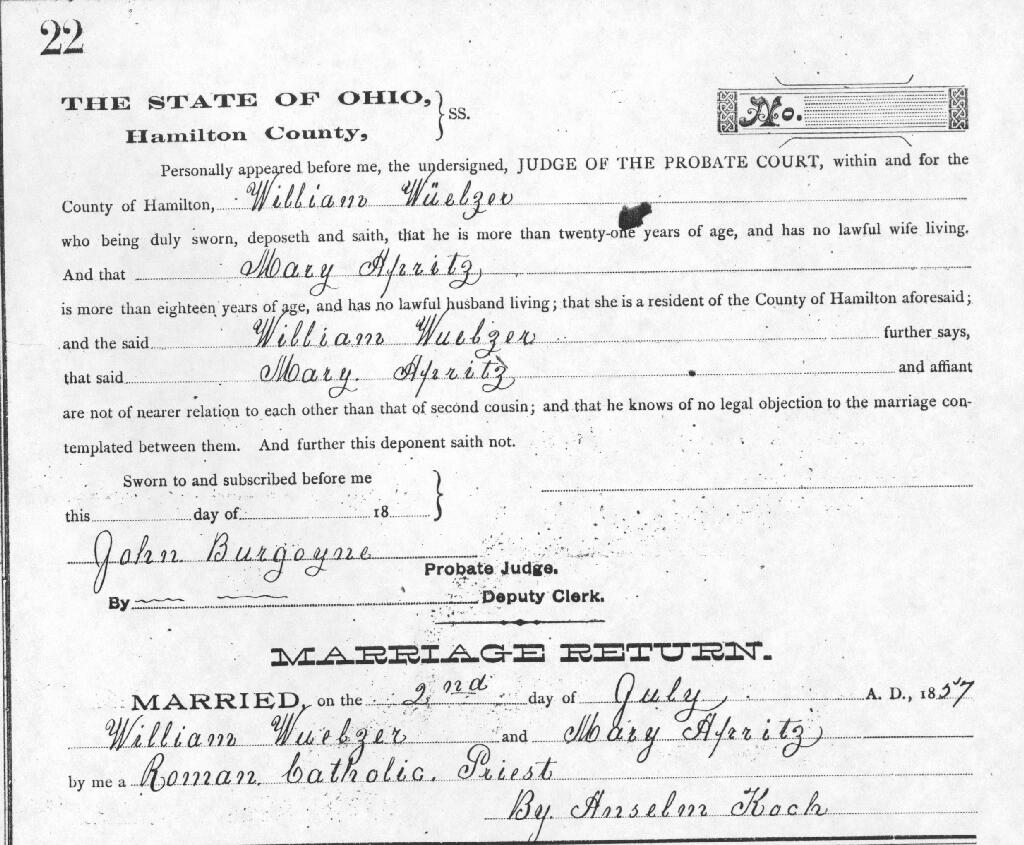 22
THE STATE OF OHIO, } SS.
Hamilton County,
No.
Personally appeared before me, the undersigned, JUDGE OF THE PROBATE COURT, within and for the
County of Hamilton, William Wüelzer
who being duly sworn, deposeth and saith, that he is more than twenty-one years of age, and has no lawful wife living.
And that Mary
is more than eighteen years of age, and has no lawful husband living; that she is a resident of the County of Hamilton aforesaid;
and the said William Wuelzer further says,
that said Mary. and affiant
are not of nearer relation to each other than that of second cousin; and that he knows of no legal objection to the marriage con-
templated between them. And further this deponent saith not.
Sworn to and subscribed before me }
this day of 18
John Burgoyne
Probate Judge.
By Deputy Clerk.
MARRIAGE RETURN.
MARRIED, on the 2nd day of July A. D., 1857
William Wuelzer and Mary
by me a Roman. Catholic. Priest
By. Anselm Koch